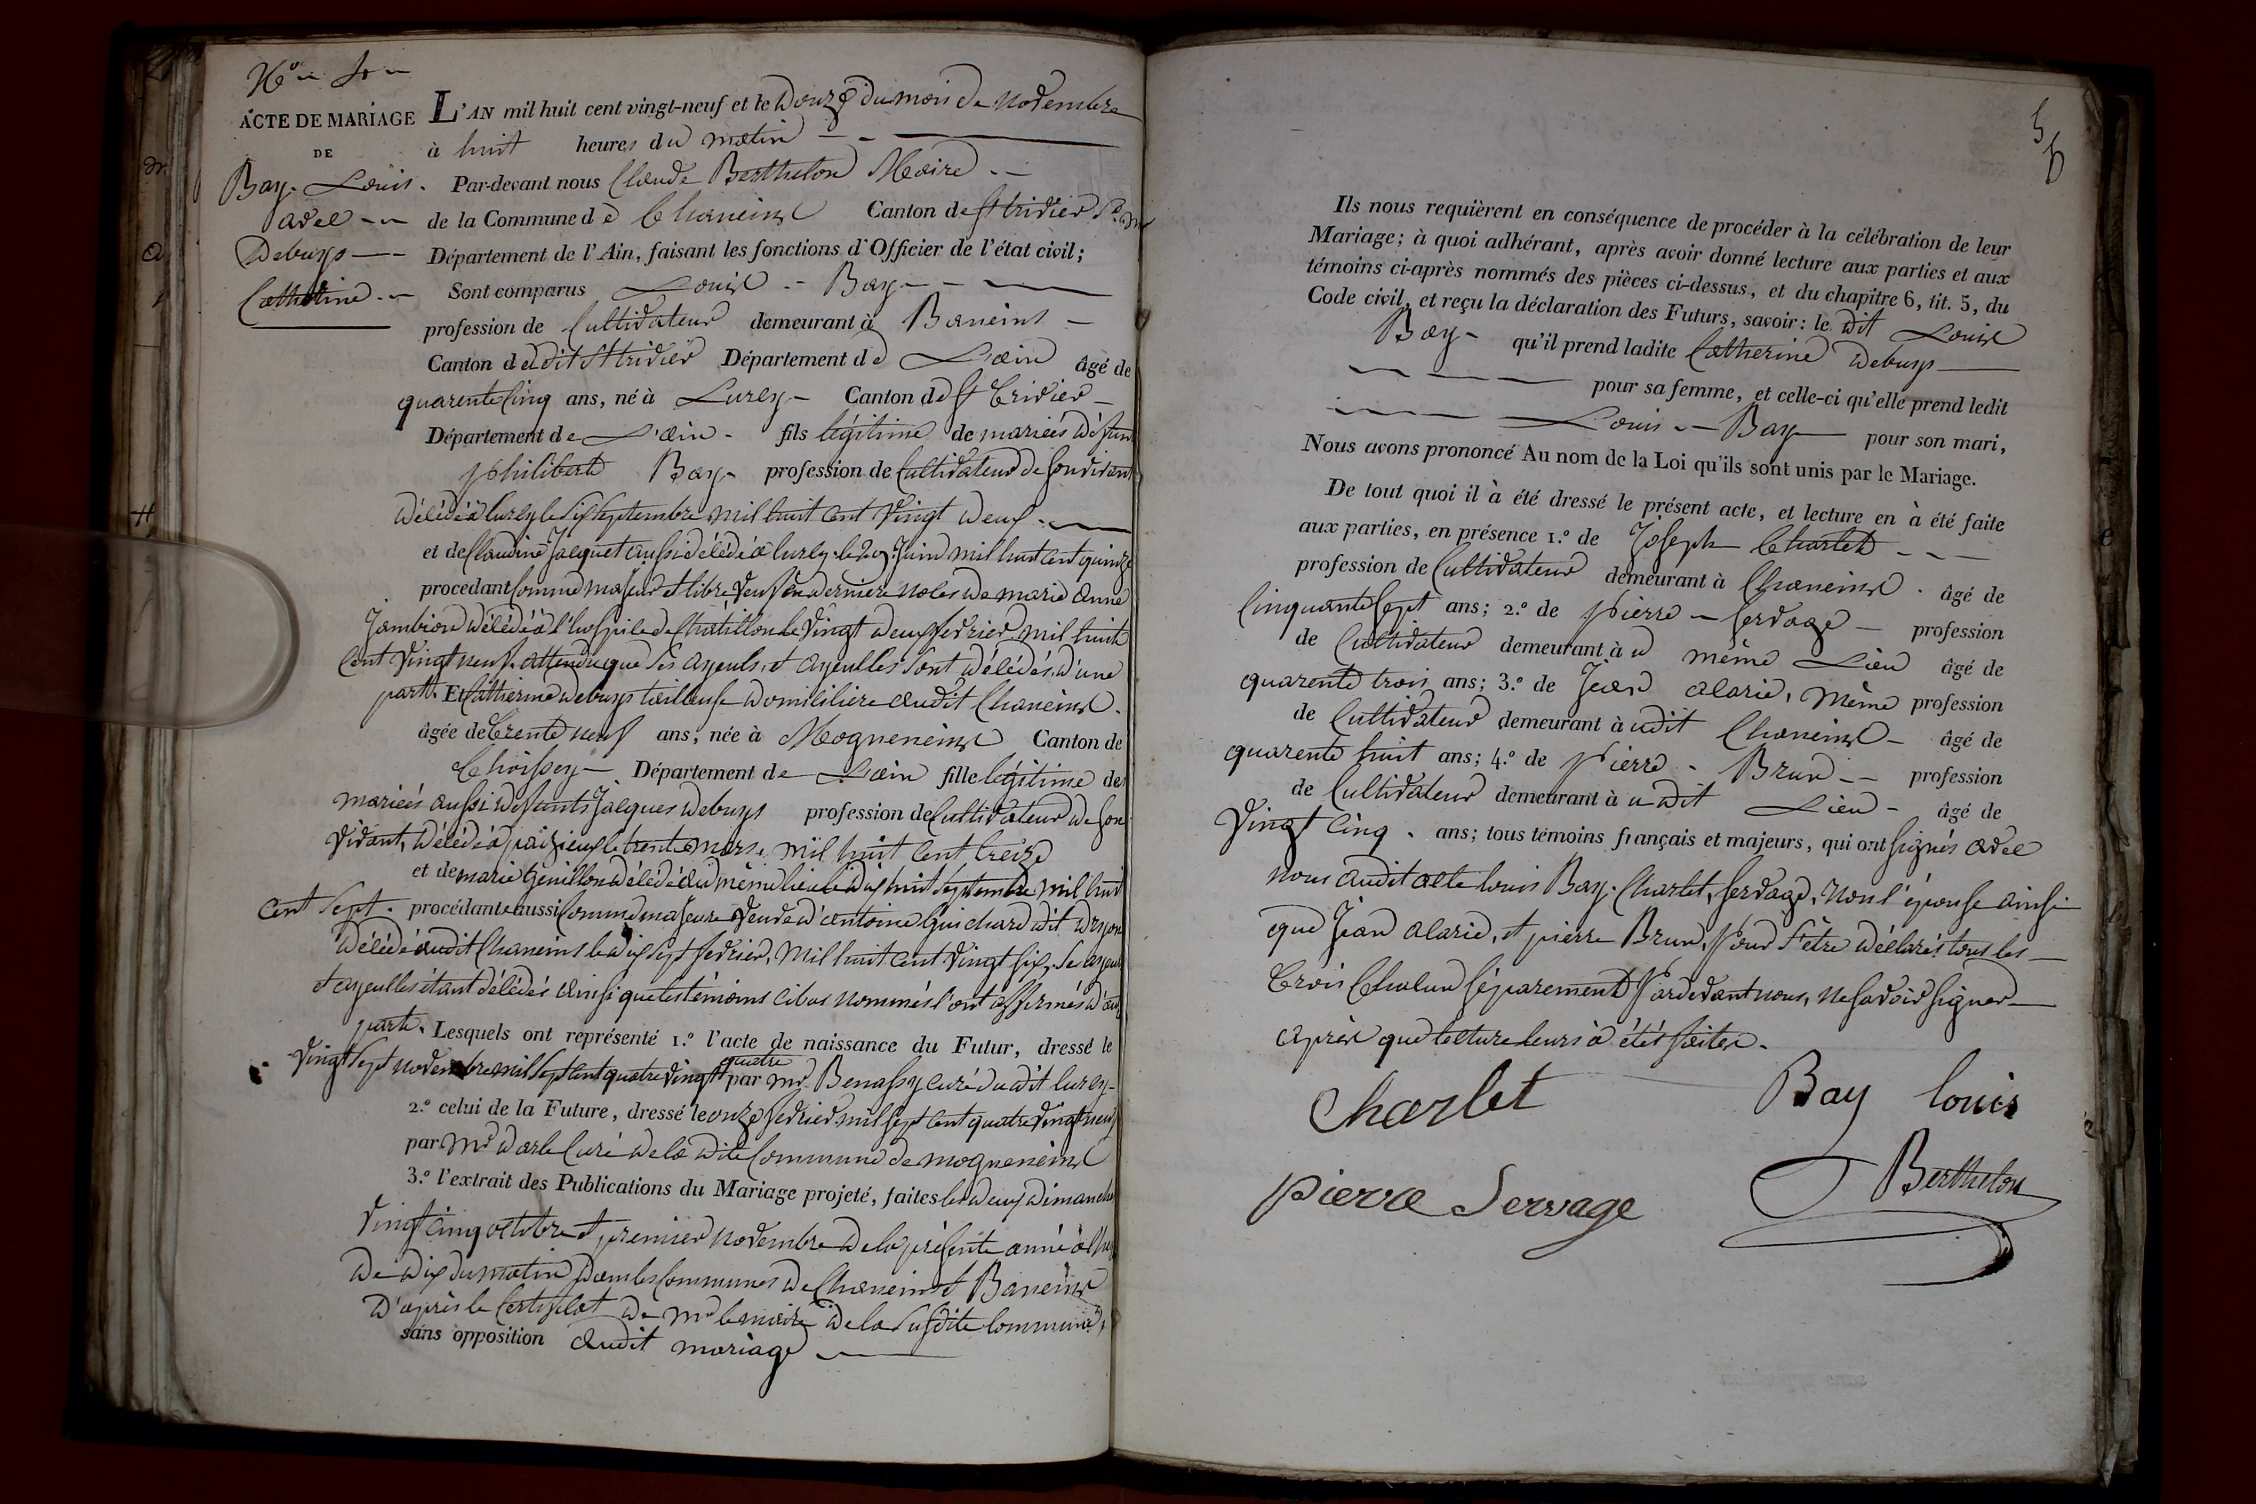 ACTE DE MARIAGE
DE
Bay Louis
avec
Debuys
Catherine
L'AN mil huit cent vingt-neuf et le douze du mois de novembre
à huit heures du matin
Par-devant nous Claude Berthelon Maire
de la Commune de Chaneins Canton de St tridier Sr. m
Département de l'Ain, faisant les fonctions d'Officier de l'état civil;
Sont comparus Louis Bay
profession de Cultivateur demeurant à Baneins
Canton dedit St tridier Département de L'ain âgé de
quarente Cinq ans, né à Lurcy Canton de St Trivier
Département de L'ain fils légitime de mariés défunt
philibert Bay profession de Cultivateur de son vivant
décédé à lurcy le six septembre mil huit cent vingt deux
et de Claudine Jacquet aussi décédé à lurcy le 29 Juin mil huit cent quinze
procedant Comme majeur et libre veuf en derniere noces de marie Anne
Jambion décédé à l'hospice de Chatillon le vingt deux fevrier mil huit
Cent vingt neuf. attendu que Ses ayeuls et ayeulles Sont décédés, d'une
part. Et Catherine debuys tailleuse domiliciere audit Chaneins.
âgée de trente neuf ans, née à Mogneneins Canton de
Thoissey Département de L'ain fille légitime des
mariés aussi defunts Jacques debuys profession de Cultivateur de son
vivant, décédé à paizieux le trente mars mil huit cent treize
et de marie Genillon décédé au même lieu le dix huit septembre mil huit
cent sept. procédante aussi Comme majeure veuve d'antoine Guichard dit dryon
décédé audit Chaneins le dix sept fevrier, mil huit cent vingt six, Ses ayeuls
et ayeulles étant décédés ainsi que les témoins cibas nommés l'ont affirmés d'au
parte. Lesquels ont représenté 1.º l'acte de naissance du Futur, dressé le
vingt Sept novembre mil Sept cent quatre vingt quatre par mr. Benassy curé dudit lurcy
2.º celui de la Future, dressé le onze fevrier mil sept cent quatre vingt neuf
par Mr. darle Curé de la dite Commune de mogneneins
3.º l'extrait des Publications du Mariage projeté, faites les deux dimanches
vingt cinq octobre et premier novembre de la présente année à
de dix du matin dans les Communes de Chaneins et Baneins
D'après le Certificat de mr. le maire de la Susdite Commune,
sans opposition audit mariage
56
Ils nous requièrent en conséquence de procéder à la célébration de leur
Mariage; à quoi adhérant, après avoir donné lecture aux parties et aux
témoins ci-après nommés des pièces ci-dessus, et du chapitre 6, tit. 5, du
Code civil, et reçu la déclaration des Futurs, savoir: le dit Louis
Bay qu'il prend ladite Catherine debuys
pour sa femme, et celle-ci qu'elle prend ledit
Louis Bay pour son mari,
Nous avons prononcé Au nom de la Loi qu'ils sont unis par le Mariage.
De tout quoi il à été dressé le présent acte, et lecture en à été faite
aux parties, en présence 1.º de Joseph Charlet
profession de Cultivateur demeurant à Chaneins. âgé de
Cinquante Sept ans; 2.º de Pierre Servage profession
de Cultivateur demeurant à u même Lieu âgé de
quarente trois ans; 3.º de Jean alarie, même profession
de Cultivateur demeurant à udit Chaneins âgé de
quarente huit ans; 4.º de Pierre Brun profession
de Cultivateur demeurant à u dit Lieu âgé de
vingt Cinq. ans; tous témoins français et majeurs, qui ont signés avec
nous audit acte louis Bay, Charlet, Servage, non l'épouse ainsi
que Jean alarie, et pierre Brun, pour s'être déclarés tous les
trois Chacun séparement pardevant nous, ne savoir signer
après que lecture leurs à étét faites.
Charlet Bay louis
pierre Servage Berthelon